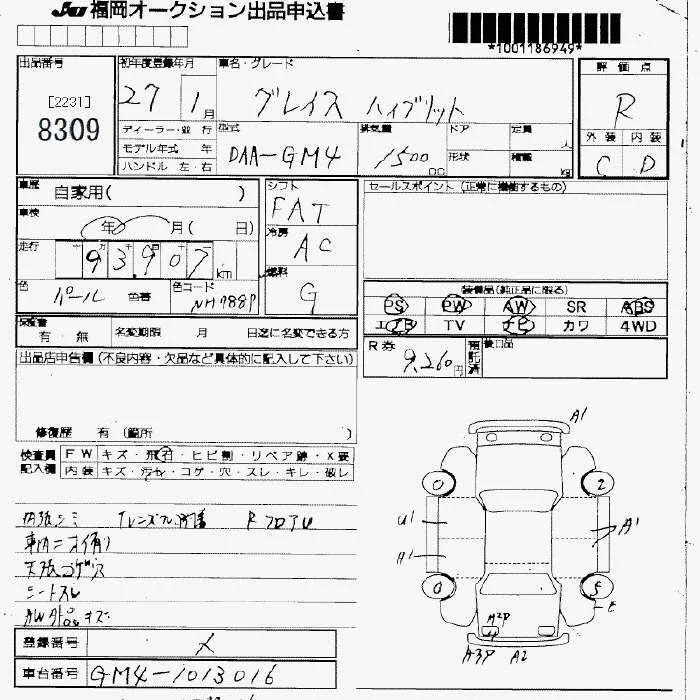 JU 福岡オークション出品申込書
*1001186949*
出品番号
[2231]
8309
初年度登録年月
27 1月
車名・グレード
グレイス ハイブリット
評価点
R
外装 内装
C D
ディーラー・並行
モデル年式 年
ハンドル 左 右
型式
DAA-GM4
排気量
1500 CC
ドア
形状
定員 人
積載 kg
車歴
自家用( )
車検
年 月( 日)
走行
93,907 km
色
パール 色番
色コード
NH788P
シフト
FAT
冷房
AC
燃料
G
セールスポイント (正常に機能するもの)
装備品(純正品に限る)
PS PW AW SR ABS
エアB TV ナビ カワ 4WD
保証書
有・無
名変期限 月 日迄に名変できる方
R券
9,260円
預託済
後日品
出品店申告欄(不良内容・欠品など具体的に記入して下さい)
修復歴 有 (箇所 )
検査員記入欄
FW キズ・飛石・ヒビ割・リペア跡・X要
内装 キズ・汚れ・コゲ・穴・スレ・キレ・破レ
内張シミ
車内ニオイ有り
天張コゲ穴
シートスレ
登録番号
メ
車台番号
GM4-1013016
A1
0 2
U1 A1
A1
0 5
E
A2P
A3P A2